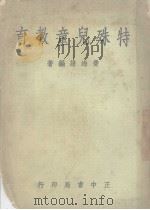 特殊兒童教育
編著
正中書局印行